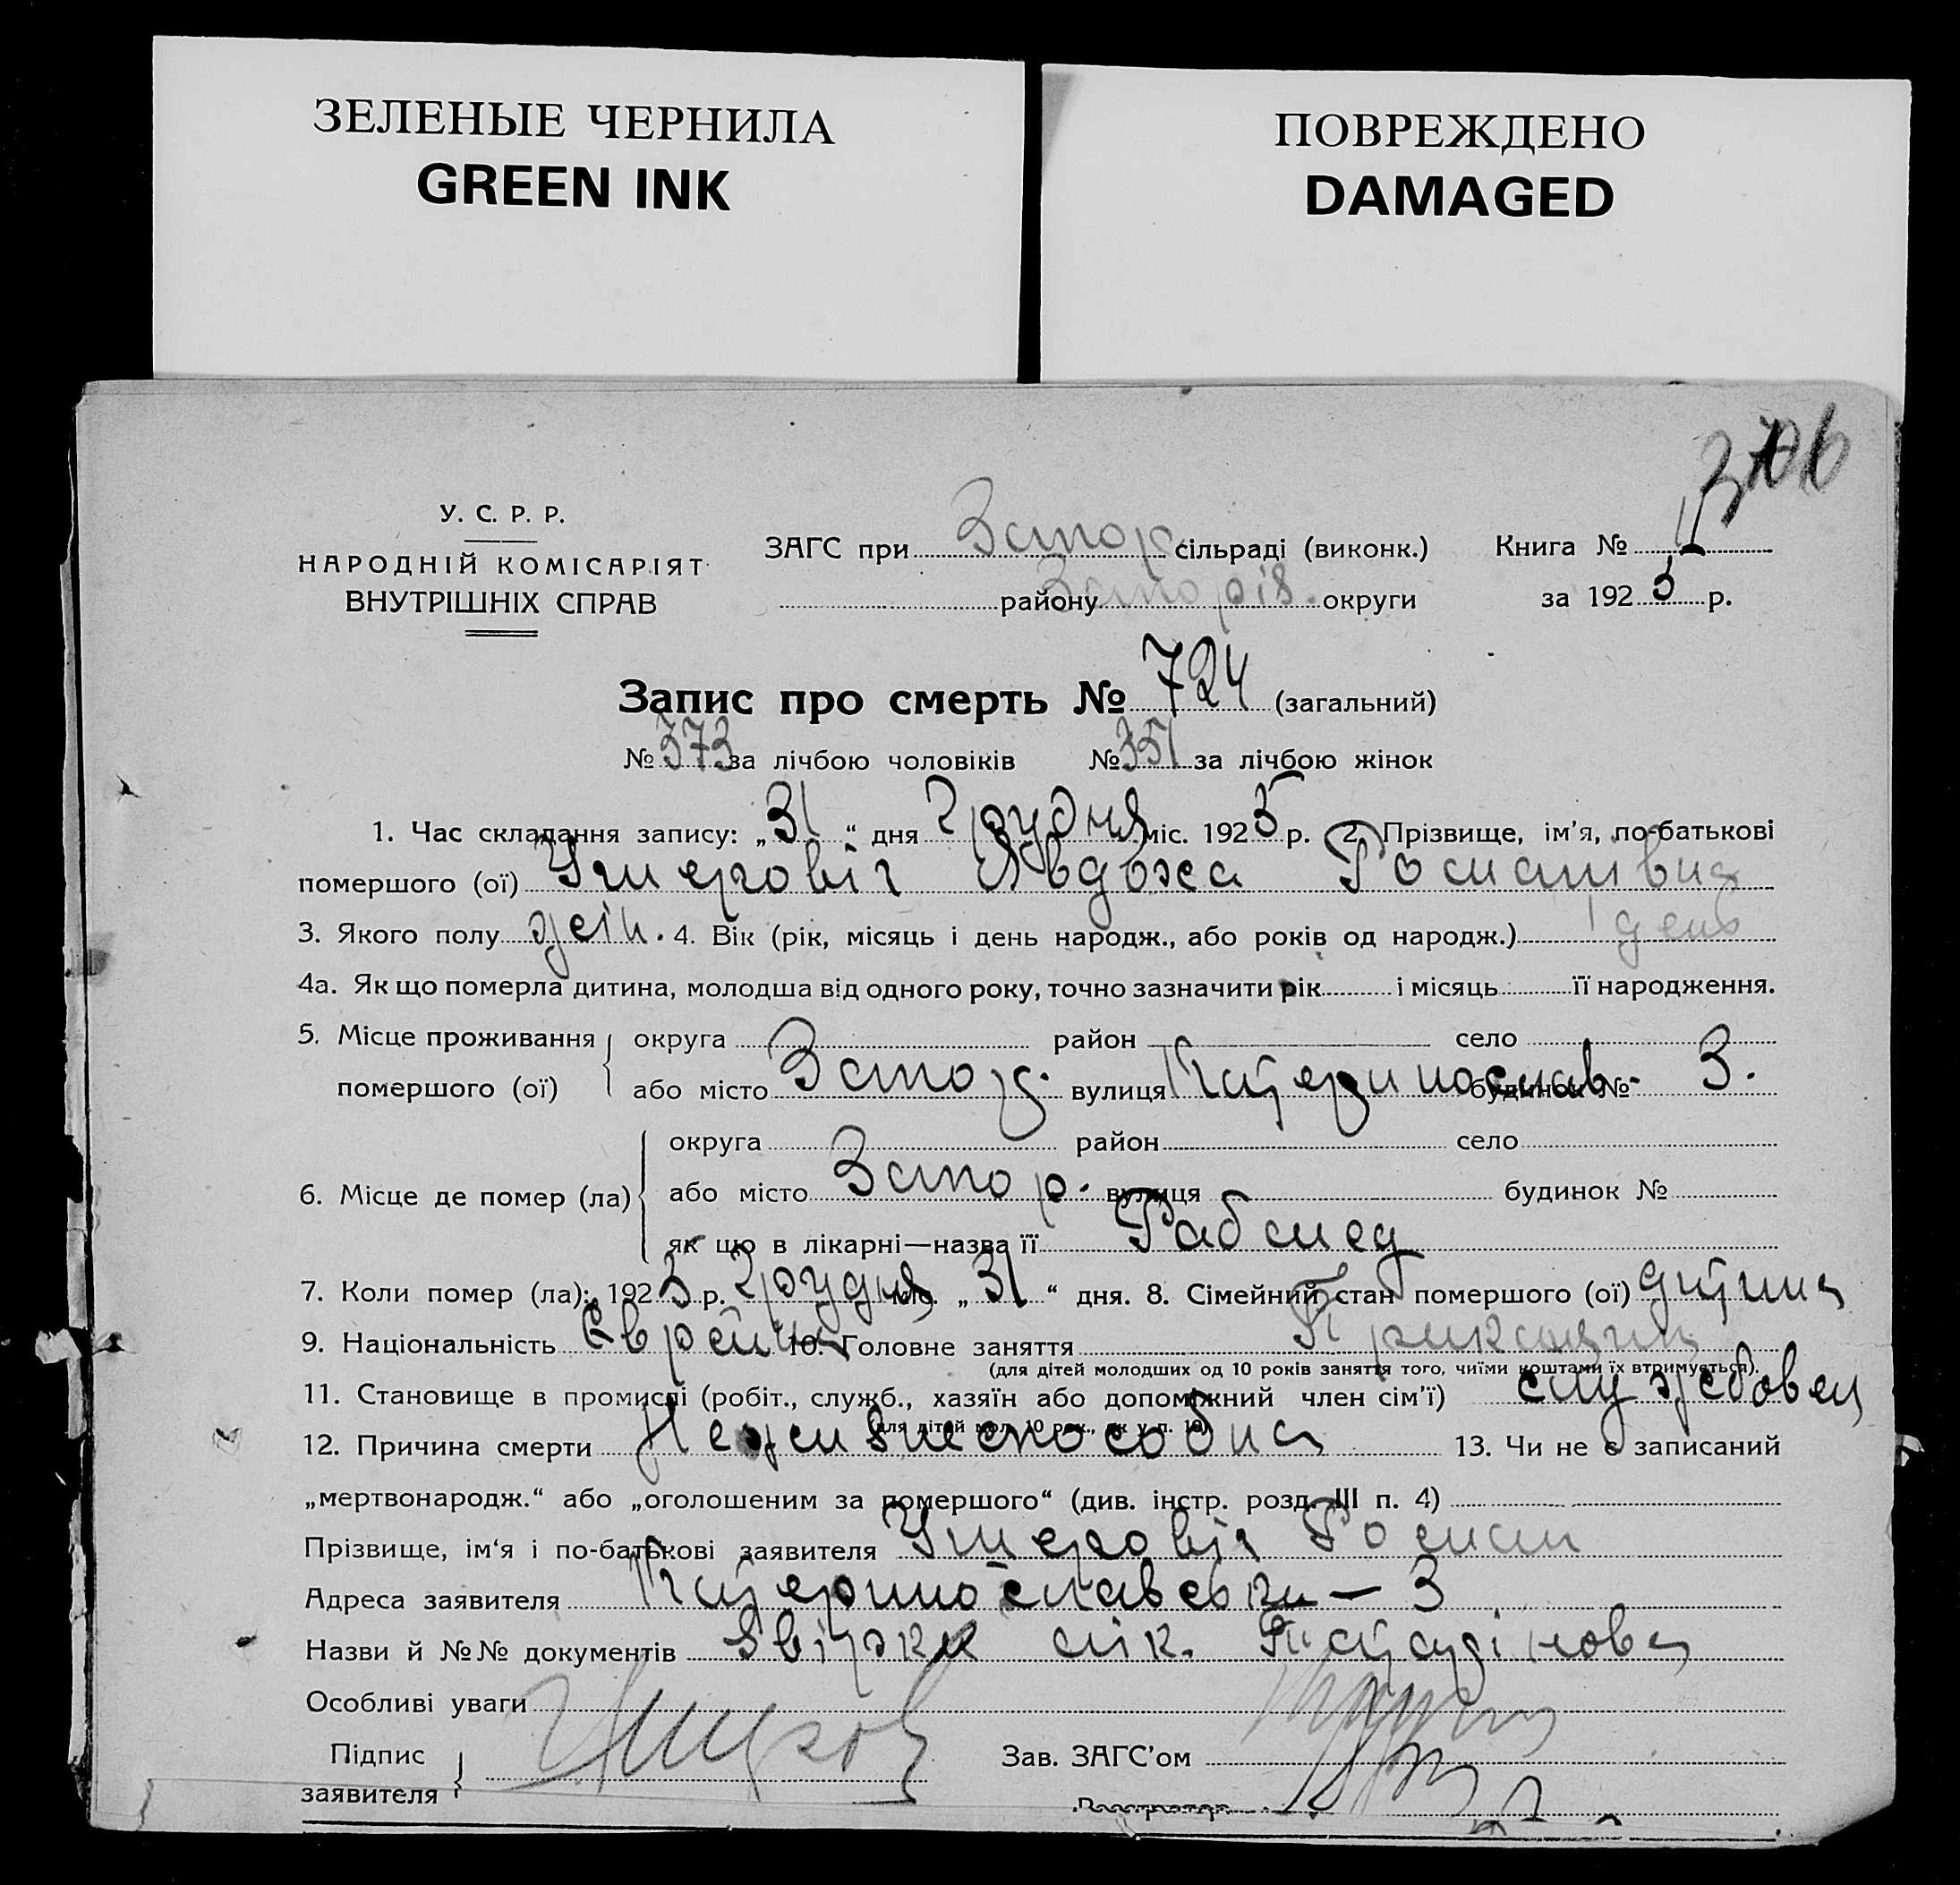 ЗЕЛЕНЫЕ ЧЕРНИЛА
GREEN INK
ПОВРЕЖДЕНО
DAMAGED
У. С. Р. Р.
НАРОДНІЙ КОМІСАРІЯТ
ВНУТРІШНІХ СПРАВ
ЗАГС при Запор. сільраді (виконк.)
району Запоріз. округи
Книга №
за 1925 р.
Запис про смерть № 724 (загальний)
№ 373 за лічбою чоловіків № 351 за лічбою жінок
1. Час складання запису: „31“ дня Грудня міс. 1925 р. 2. Прізвище, ім’я, по-батькові
помершого (ої) Явдоха Романівна
3. Якого полу жін. 4. Вік (рік, місяць і день народж., або років од народж.) 1 день
4а. Як що померла дитина, молодша від одного року, точно зазначити рік і місяць її народження.
5. Місце проживання округа район село
помершого (ої) або місто Запор. вулиця Катеринослав. будинок № 3.
округа район село
6. Місце де помер (ла) або місто Запор. вулиця будинок №
як що в лікарні—назва її Рабмед
7. Коли помер (ла): 1925 р. Грудня міс. „31“ дня. 8. Сімейний стан помершого (ої) дитина
9. Національність Єврейка 10. Головне заняття
(для дітей молодших од 10 років заняття того, чиїми коштами їх втримується).
11. Становище в промислі (робіт., служб., хазяїн або допоміжний член сім’ї) службовец
(для дітей мол. 10 рок., як у п. 10)
12. Причина смерти Нежизнеспособна 13. Чи не є записаний
„мертвонародж.“ або „оголошеним за помершого“ (див. інстр. розд. III п. 4)
Прізвище, ім‘я і по-батькові заявителя Роман
Адреса заявителя Катеринославська — 3
Назви й №№ документів лік.
Особливі уваги
Підпис
заявителя
Зав. ЗАГС’ом